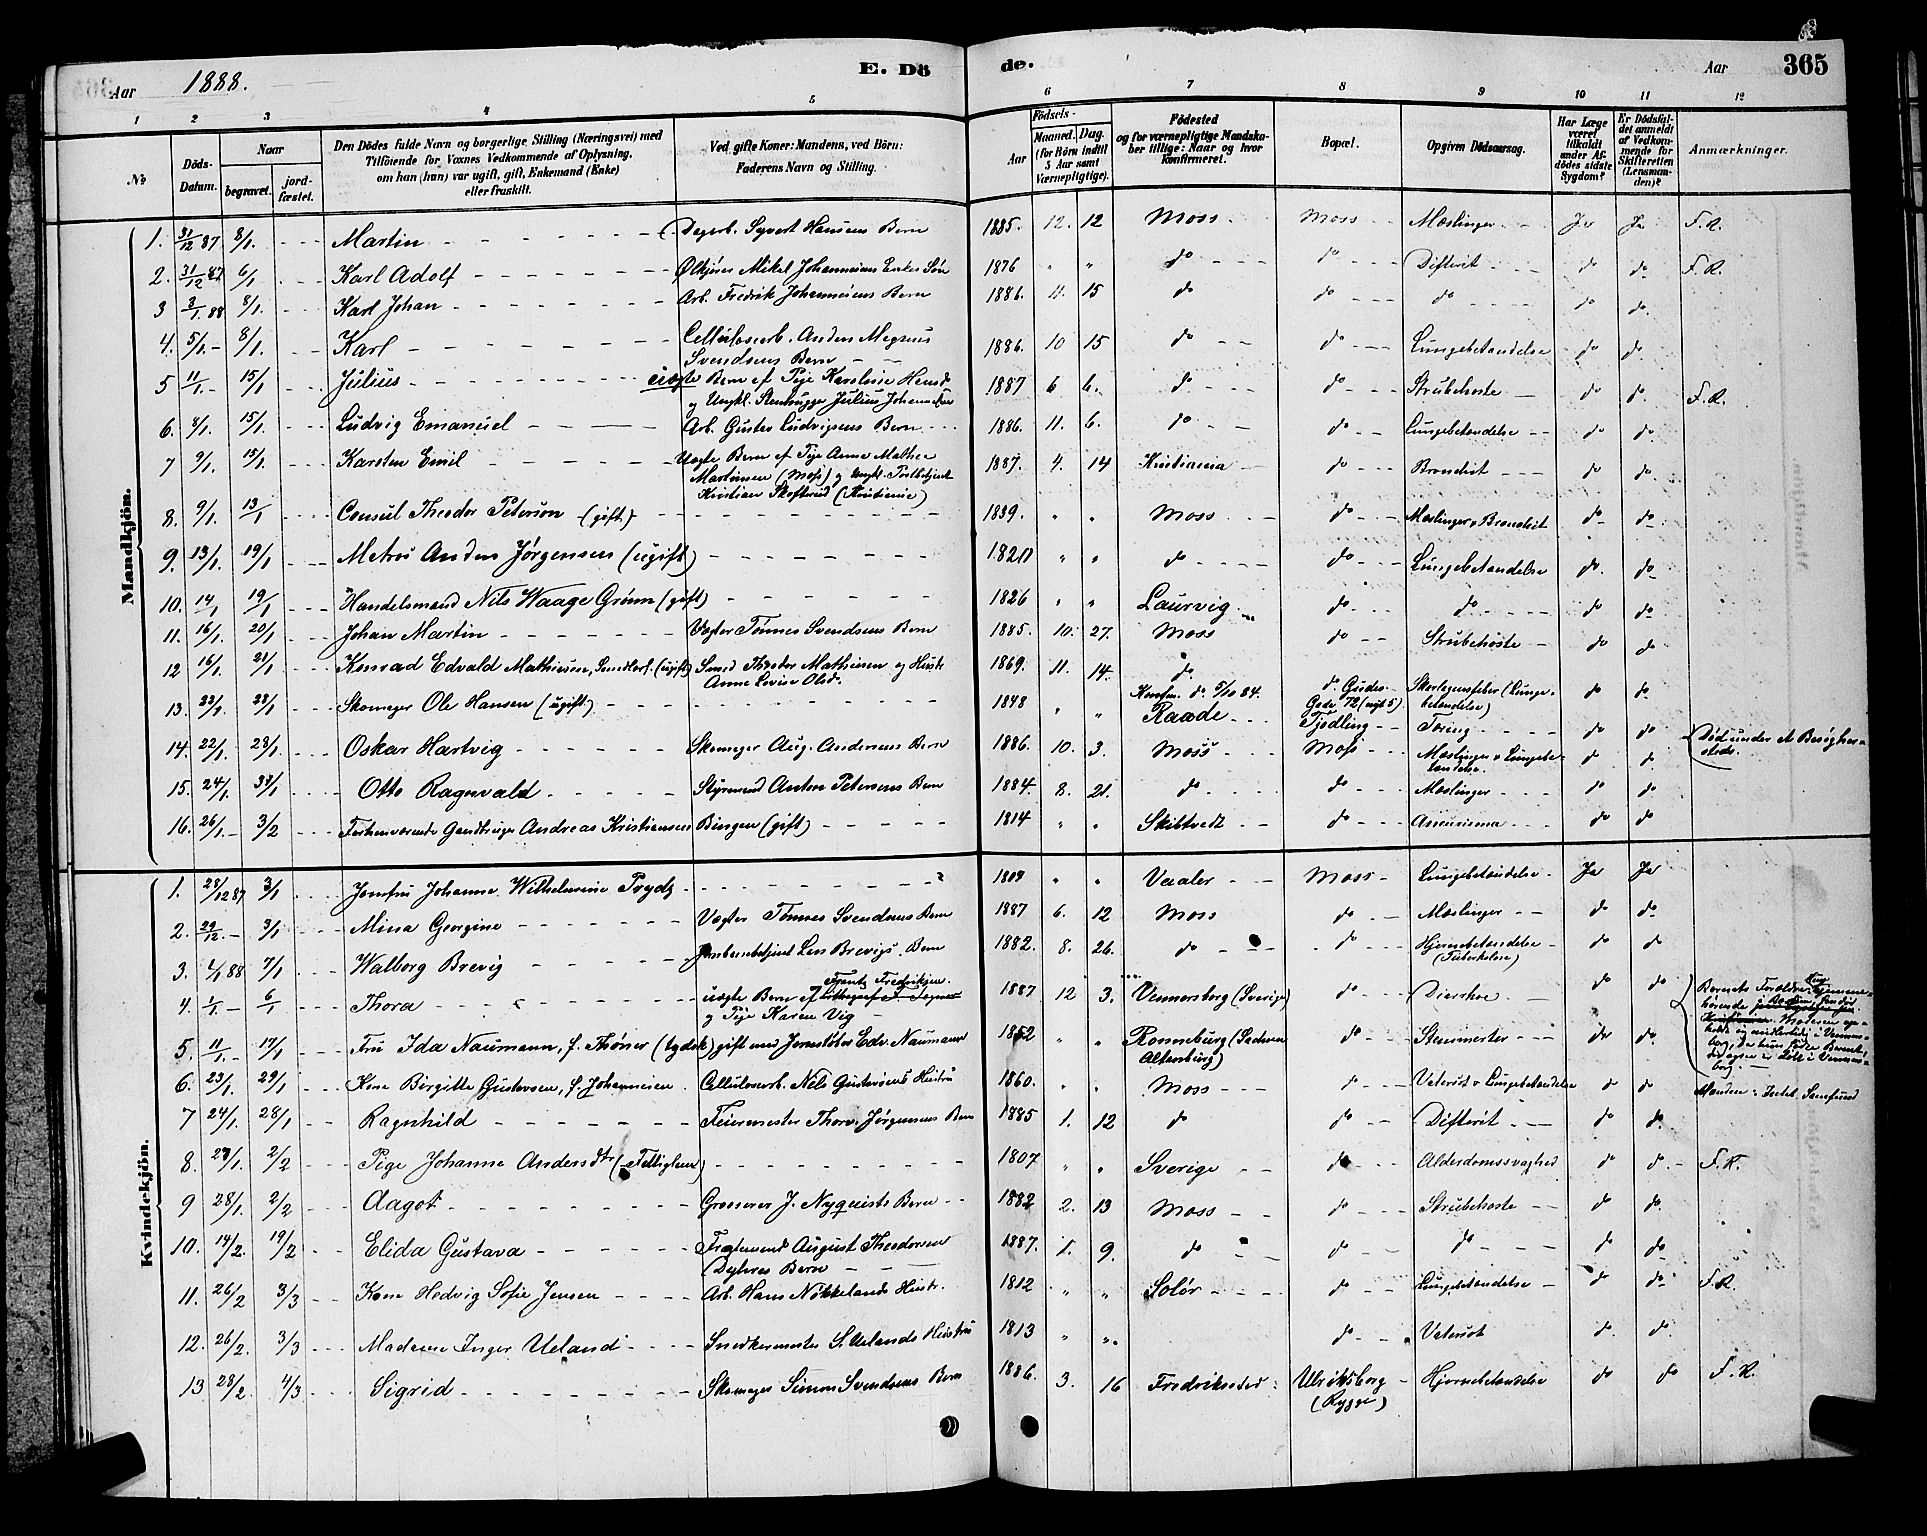 Aar 1888.
E. Dö
de.
Aar
365
1 2 3 4 5 6 7 8 9 10 11 12
No
Döds-Datum.
Naar
begravet.
jordfæstet.
Den Dödes fulde Navn og borgerlige Stilling (Næringsvei) med
Tilföiende for Voxnes Vedkommende af Oplysning,
om han (hun) var ugift, gift, Enkemand (Enke)
eller fraskilt.
Ved gifte Koner: Mandens, ved Börn:
Faderens Navn og Stilling.
Födsels-
Aar
Maaned. Dag.
(for Börn indtil
5 Aar samt
Værnepligtige).
Födested
og for værnepligtige Mandskaber tillige: Naar og hvor
Konfirmeret.
Bopæl.
Opgiven Dödsaarsag.
Har Læge
været
tilkaldt
under Afdödes sidste
Sygdom?
Er Dödsfaldet anmeldt
af Vedkommende for
Skifteretten
(Lensmanden)?
Anmærkninger.
Mandkjön.
1. 31/12 87 8/1. Martin Dagarb. Syvert Hansens Barn 1885. 12. 12 Moss Moss Mæslinger Ja Ja F.R.
2. 31/12 87 6/1 Karl Adolf Ølkjører Mikal Johannesens Enkes Søn 1876 " " do do Difterit do do F.R.
3 3/1. 88 8/1. Karl Johan Arb. Fredrik Johannesens Barn 1886. 11. 15 do do do do do
4. 5/1. - 8/1. Karl Cellulosearb. Anders Magnus
Svendsens Barn 1886. 10 15 do do Lungebetændelse do do
5 11/1. - 15/1 Julius uægte Barn af Pige Karoline Hansd.
og Ungkl. Stenhugger Julius Johannesen 1887 6 6. do do Strubehoste do do F.R.
6. 8/1. 15/1. Ludvig Emanuel Arb. Gustav Ludvigsens Barn 1886. 11. 6. do do Lungebetændelse do do
7 9/1. 15/1. Karsten Emil Uægte Barn af Pige Anna Mathea
Martinsen (Moss) og Ungk. Postbetjent
Kristian Skofterud (Kristiania) 1887. 4. 14 Kristiania do Bronchit do do
8. 9/1. 13/1 Consul Theodor Peterson (gift) 1839. " " Moss do Mæslinger, Bronchit do do
9. 13/1. 19/1 Matros Anders Jørgensen (ugift) " " do do Lungebetændelse do do
10. 14/1 19/1 Handelsmand Nils Waage Grønn (gift) 1826 " " Laurvig do do do do
11. 16/1. 20/1 Johan Martin Vægter Tønnes Svendsens Barn 1885. 10. 27. Moss do Strubehoste do do
12 16/1. 21/1 Konrad Edvald Mathiesen, (ugift) Smed Theodor Mathiesen og Hustr.
Anne Lovise Olsd. 1869. 11. 14. do
Konfm. do 5/10 84. do Gudes
Gade 72 (nyt 5) Skarlagensfeber (Lungebetændelse) do do
13. 23/1. 28/1 Skomager Ole Hansen (ugift) 1848 " " Raade Tæring do do
14. 22/1. 28/1. Oskar Hartvig Skomager Aug. Andersens Barn 1886. 10. 3. Moss Moss Mæslinger & Lungebetændelse. do do
15. 24/1. Otto Ragnvald Styrmand Anton Petersens Barn 1884. 8. 21. do do Mæslinger do do
16. 26/1. - 3/2 Forhenværende Andreas Kristiansen Bingen (gift) 1814 " " Skibtvedt do Aneurisma do do
Kvindekjön.
1. 28/12 87 3/1 Jomfru Johanne Wilhelmine Prydz 1809 " " Vaaler Moss Lungebetændelse Ja Ja
2. 29/12. - 3/1 Mina Georgine Vægter Tønnes Svendsens Barn 1887 6. 12 Moss do Mæslinger do do
3. 88 7/1 Walborg Brevig Jernbanebetjent Lars Brevigs Barn 1882. 8. 26. do do Hjernebetændelse
(Tuberkeløse) do do
4. 6/1 Thora uægte Barn af Frantz Fredriksen
og Pige Karen Vig 1887 12 3. Vennersborg (Sverige) do Diarrhoe do do
5. 11/1. - 17/1 Fru Ida Naumann, f. Thöner (tydsk) gift med Jernstøber Edv. Naumann 1852 " " Ronneburg (Sachsen
Altenburg) do do do
6. 23/1. 29/1 Kone Birgitte Gustavsen, f. Johannesen Cellulosearb. Nils Gustavsens Hustru 1860. " " Moss do Vatersot & Lungebetændelse do do
7 24/1. 28/1 Ragnhild Feiermester Thorv. Jørgensens Barn 1885 1. 12 do do Difterit do do
8. 2/2 Pige Johanne Anders dtr (Fattiglem) 1807 " " Sverige do Alderdomssvaghed do do F.R.
9 28/1. 2/2 Aagot Grosserer J. Nyquists Barn 1882 2. 13 Moss do Strubehoste do do
10. 14/2. 19/2 Elida Gustava August Theodorsen
Barn 1887. 1. 9. do do do do do
11. 26/2 3/3 Kone Hedvig Sofie Jensen Arb. Hans Nökkelands Hustr. 1812 " " Solør do Lungebetændelse do do F.R.
12. 26/2. 3/3 Madame Inger Ueland Snedkermester S. Uelands Hustru 1813 " " do Vatersot do do
13 28/2. 4/3 Sigrid Skomager Simon Svendsens Barn 1886. 3. 16 Fredrikssted Ulriksborg
(Rygge) Hjernebetændelse do do F.R.